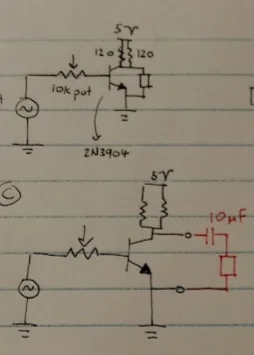 5V
120 120
10k pot
2N3904
C
5V
10µF